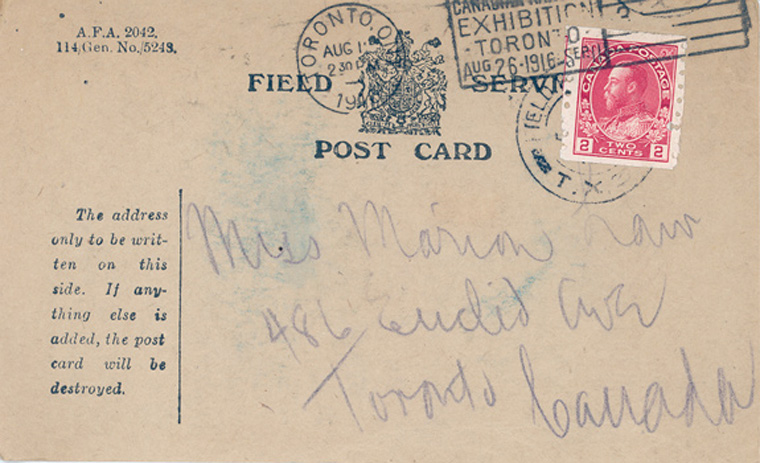 A.F.A. 2042.
114/Gen. No./5248.
TORONTO, O
AUG 1
2 30
19
CANADIAN
EXHIBITION
TORONTO
AUG 26 · 1916
FIELD SERV
POST CARD
CANADA POSTAGE
2 TWO CENTS 2
T. X.
The address
only to be writ-
ten on this
side. If any-
thing else is
added, the post
card will be
destroyed.
Miss Marion Law
486 Euclid Ave
Toronto Canada